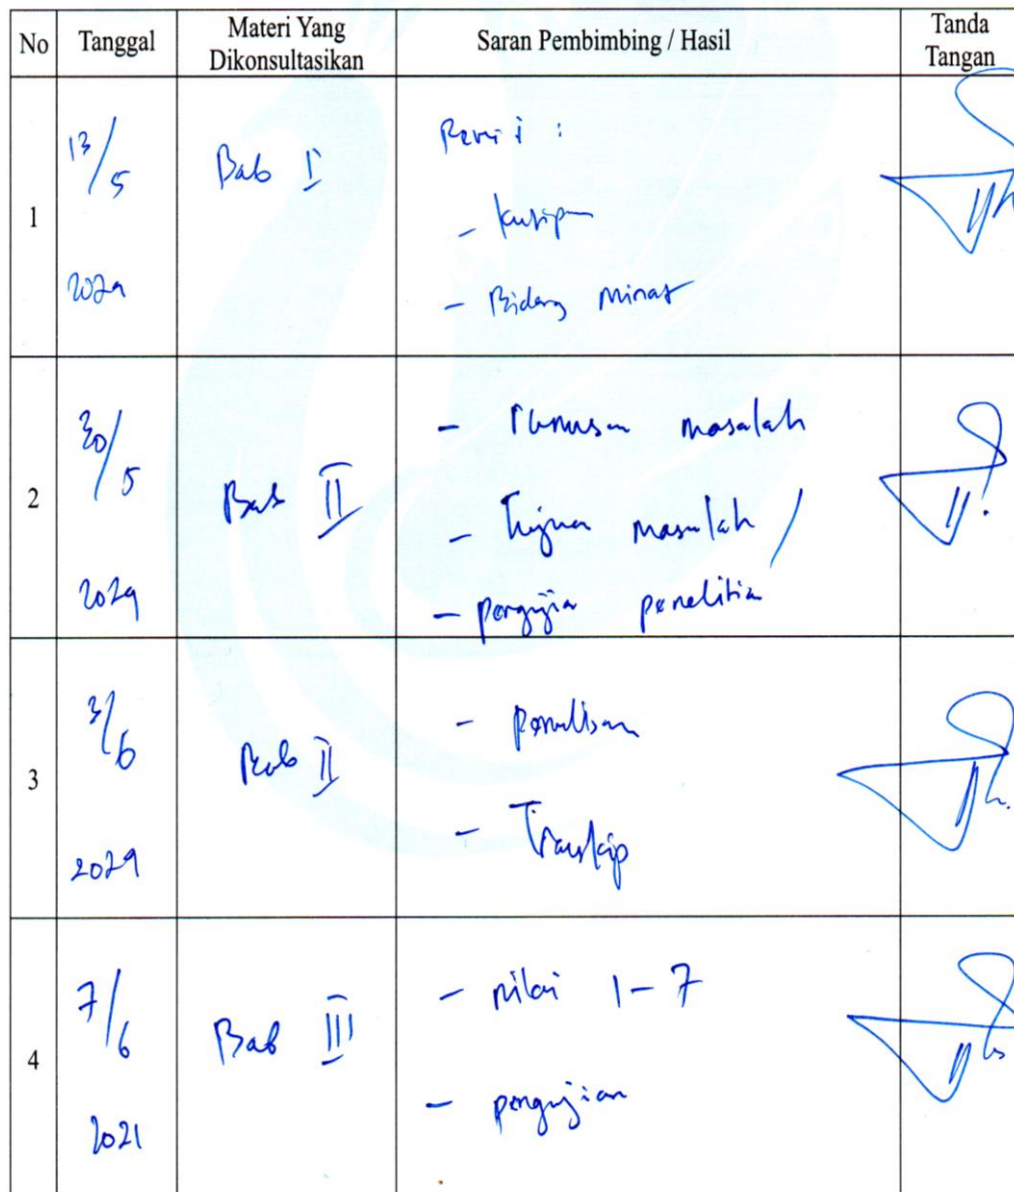 No Tanggal Materi Yang Dikonsultasikan Saran Pembimbing / Hasil Tanda Tangan
1 13/5 2021 Bab I Revisi :
- kutipan
- Bidang Minat
2 30/5 2021 Bab II - Rumusan masalah
- Tujuan masalah /
- pengujian penelitian
3 3/6 2021 Bab II - penulisan
- Transkip
4 7/6 2021 Bab III - nilai 1-7
- pengujian